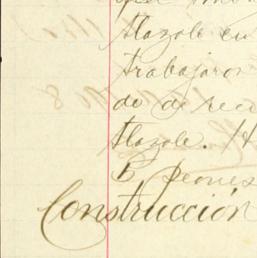 tlazole en
trabajaron
de
tlazole. H
5 peones
Construcción